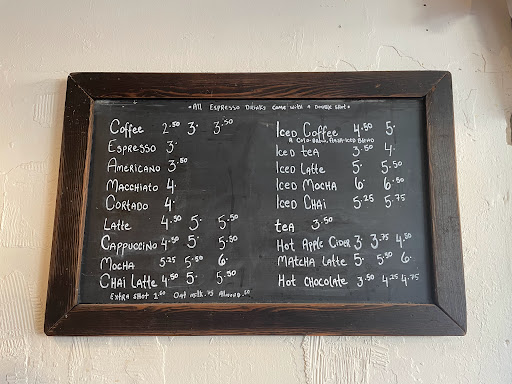 •All Espresso Drinks come with a double shot•
Coffee 2.50 3. 3.50
Espresso 3.
Americano 3.50
Macchiato 4.
Cortado 4.
Latte 4.50 5. 5.50
Cappuccino 4.50 5. 5.50
Mocha 5.25 5.50 6.
Chai Latte 4.50 5. 5.50
Extra shot 1.50 Oat milk .75 Almond .50
Iced Coffee 4.50 5.
Iced tea 3.50 4.
Iced Latte 5. 5.50
Iced Mocha 6. 6.50
Iced Chai 5.25 5.75
tea 3.50
Hot Apple Cider 3. 3.75 4.50
Matcha Latte 5. 5.50 6.
Hot Chocolate 3.50 4.25 4.75